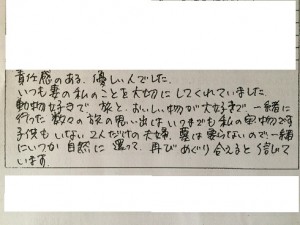 責任感のある、優しい人でした。
いつも妻の私のことを大切にしてくれていました。
動物好きで 旅と、おいしい物が大好きで、一緒に
行った数々の旅の思い出は いつまでも 私の宝物です
子供もいない 2人だけの夫婦、墓は要らないので、一緒
にいつか 自然に 還って、再びめぐり合えると 信じて
います。